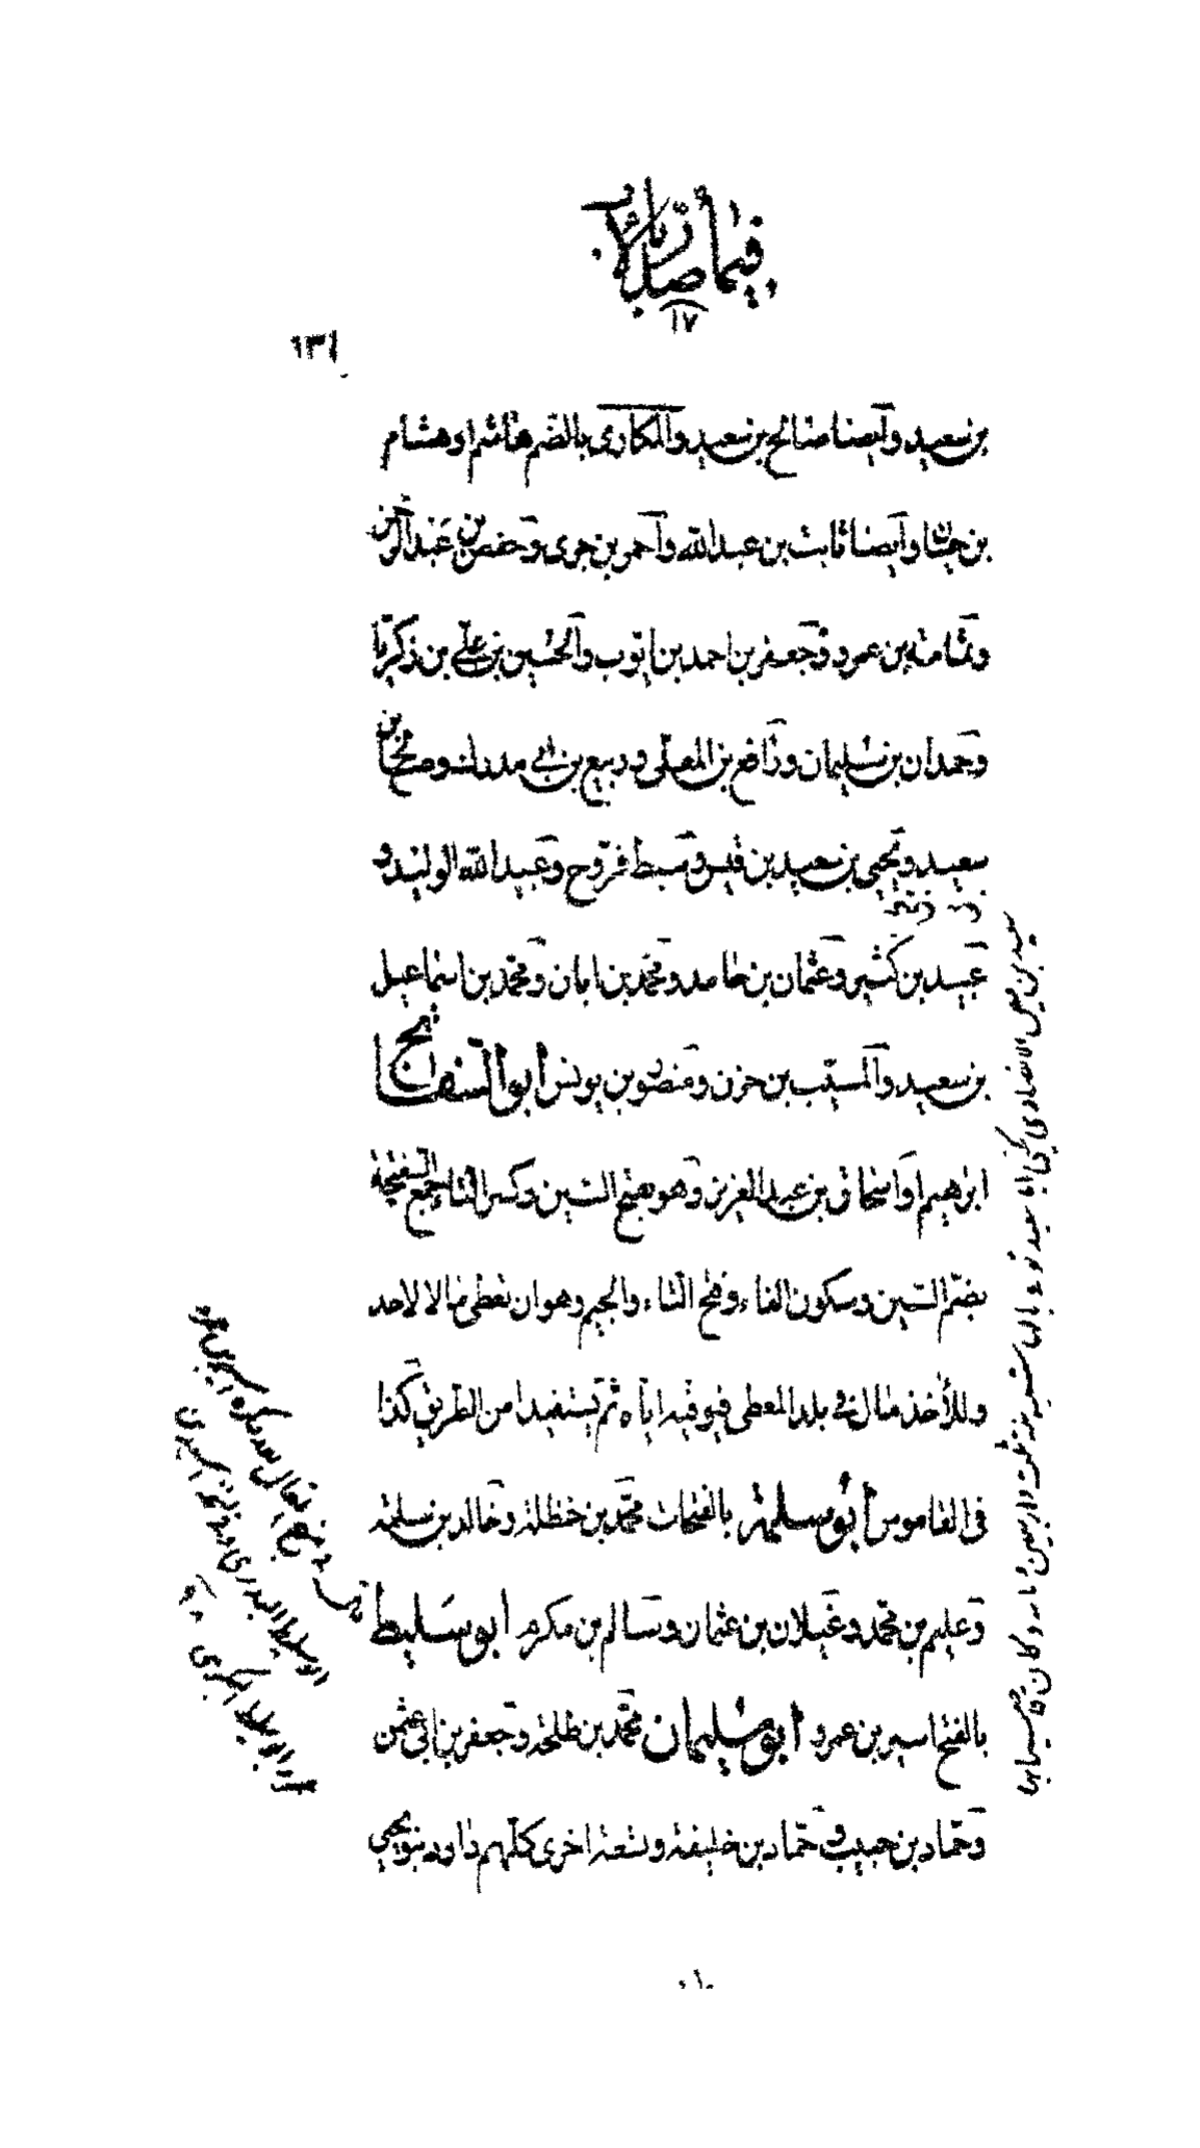 فيما صدر بأب
١٧
١٣١
بن سعيد وأيضا صالح بن سعيد والمكارى بالضم هاشم او هشام
بن حيان وأيضا ثابت بن عبد الله وأحمر بن جرى وحفص بن عبد الرحمن
وثمامة بن عمرو وجعفر بن احمد بن ايوب والحسين بن علي بن زكريا
وحمدان بن سليمان ورافع بن المعلى وربيع بن ابي مدرك وصالح بن
سعيد ويحيى بن سعيد بن قيس وسبط فروح وعبيد الله الوليد و
عبيد بن كثير وعثمان بن حامد ومحمد بن ابان ومحمد بن اسماعيل
بن سعيد والمسيب بن حزن ومنصور بن يونس ابو السفاتج
ابراهيم او اسحاق بن عبد العزيز وهو بفتح السين وكسر التاء جمع السفتجة
بضم السين وسكون الفاء وفتح التاء والجيم وهو ان تعطى مالا لاحد
وللأخذ مال في بلد المعطى فيوفيه اياه ثم يستفيد امن الطريق كذا
في القاموس أبو سلمة بالفتحات محمد بن حنظلة وخالد بن سلمة
وعليم بن محمد وغيلان بن عثمان وسالم بن مكرم ابو سليط
بالفتح اسير بن عمرو ابو سليمان محمد بن طلحة وجعفر بن ابي عثمن
وحماد بن حبيب وحماد بن خليفة وتسعة اخرى كلهم داود بنو يحيى
سعيد بن قيس الانصاري يكنى ابا سعيد